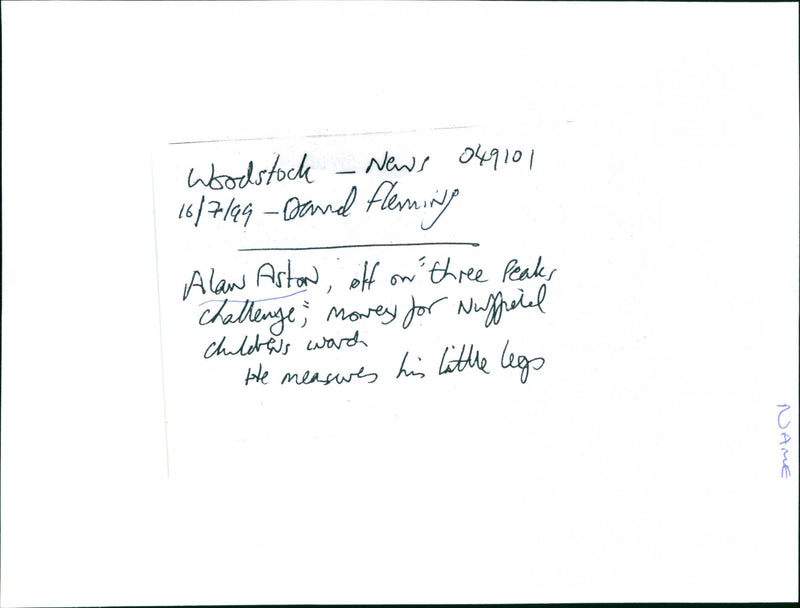 Woodstock – News 049101
16/7/99 – David Fleming
Alan Aston, off on "three Peaks
challenge"; money for Nuffield
childrens ward
He measures his little legs
NAME